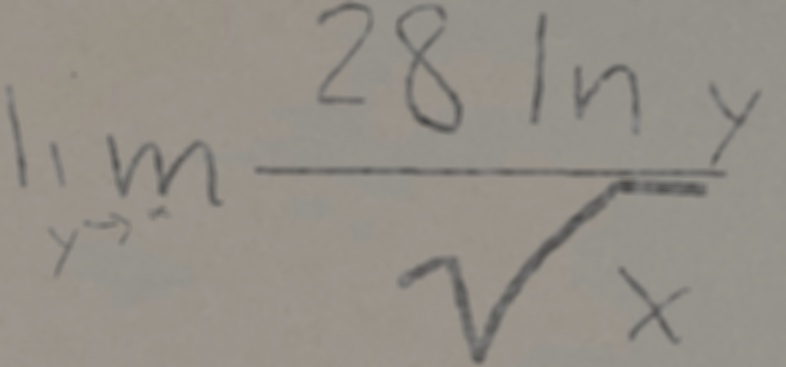 lim 28 ln y
y→ √x